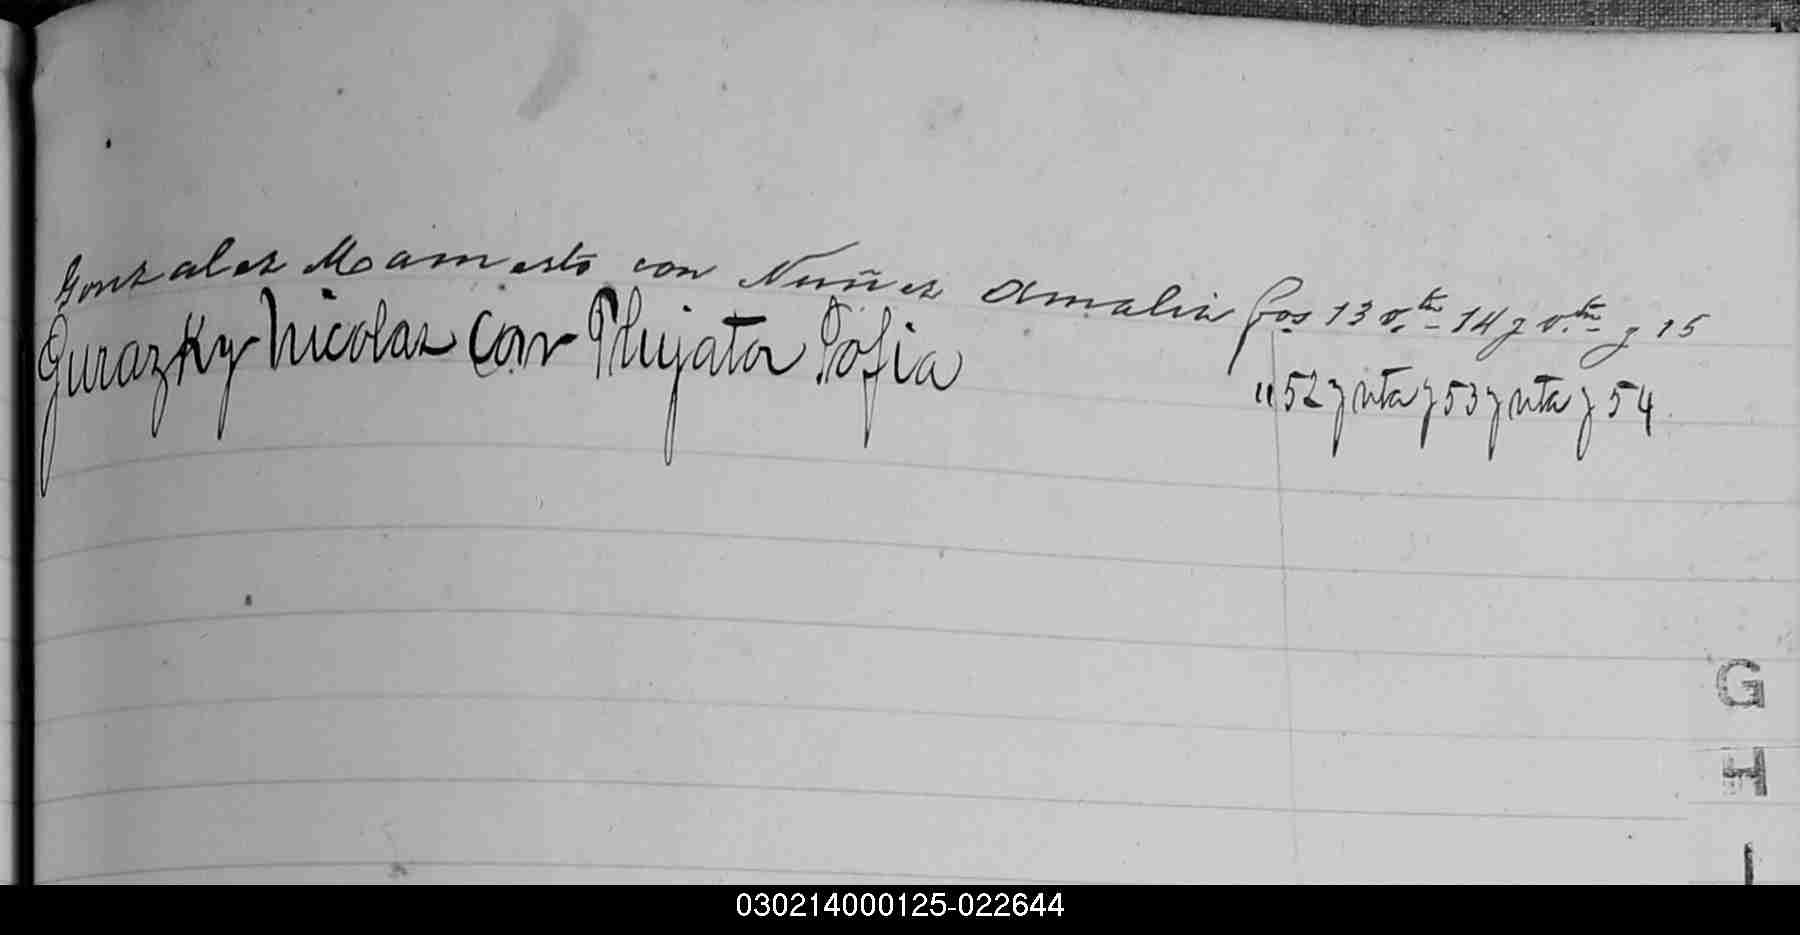 Gonzalez Mamerto con Nuñez Amalia fos 13 v.ta 14 y v.ta y 15
Gurazky Nicolas con Plujata Sofia "52 y vta y 53 y vta y 54
G
H
I
030214000125-022644